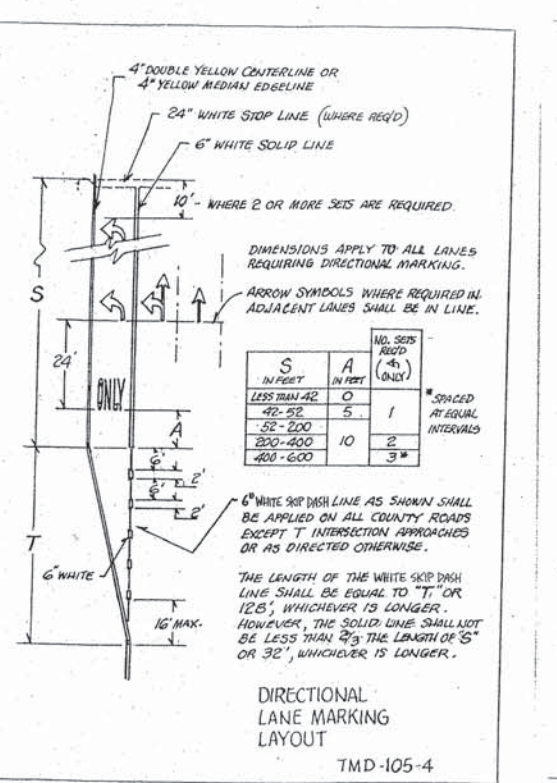 4" DOUBLE YELLOW CENTERLINE OR
4" YELLOW MEDIAN EDGELINE
24" WHITE STOP LINE (WHERE REQ'D)
6" WHITE SOLID LINE
10' - WHERE 2 OR MORE SETS ARE REQUIRED.
DIMENSIONS APPLY TO ALL LANES
REQUIRING DIRECTIONAL MARKING.
S
ARROW SYMBOLS WHERE REQUIRED IN
ADJACENT LANES SHALL BE IN LINE.
24'
ONLY
A
S
IN FEET
A
IN FEET
NO. SETS
REQ'D
( ONLY)
LESS THAN 42 0
42-52 5 1
52-200
200-400 10 2
400-600 3*
*SPACED
AT EQUAL
INTERVALS
6'
2'
6'
2'
T
6" WHITE
16' MAX.
6" WHITE SKIP DASH LINE AS SHOWN SHALL
BE APPLIED ON ALL COUNTY ROADS
EXCEPT T INTERSECTION APPROACHES
OR AS DIRECTED OTHERWISE.
THE LENGTH OF THE WHITE SKIP DASH
LINE SHALL BE EQUAL TO "T," OR
128', WHICHEVER IS LONGER.
HOWEVER, THE SOLID LINE SHALL NOT
BE LESS THAN 2/3 THE LENGTH OF "S"
OR 32', WHICHEVER IS LONGER.
DIRECTIONAL
LANE MARKING
LAYOUT
TMD-105-4